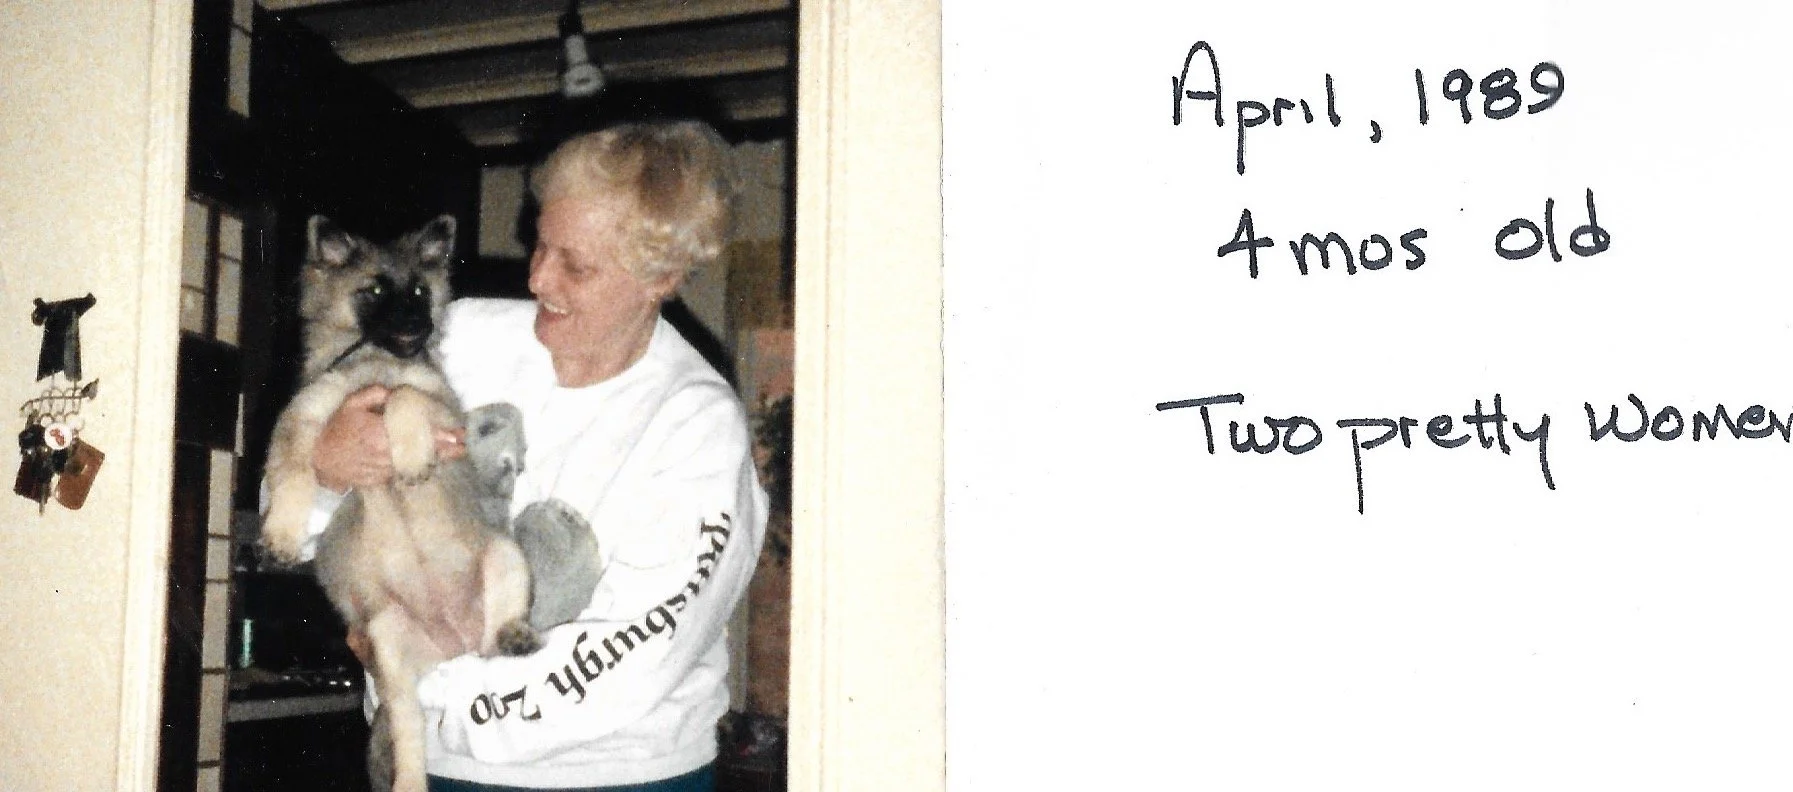 April, 1989
4 mos old
Two pretty women
Pittsburgh Zoo